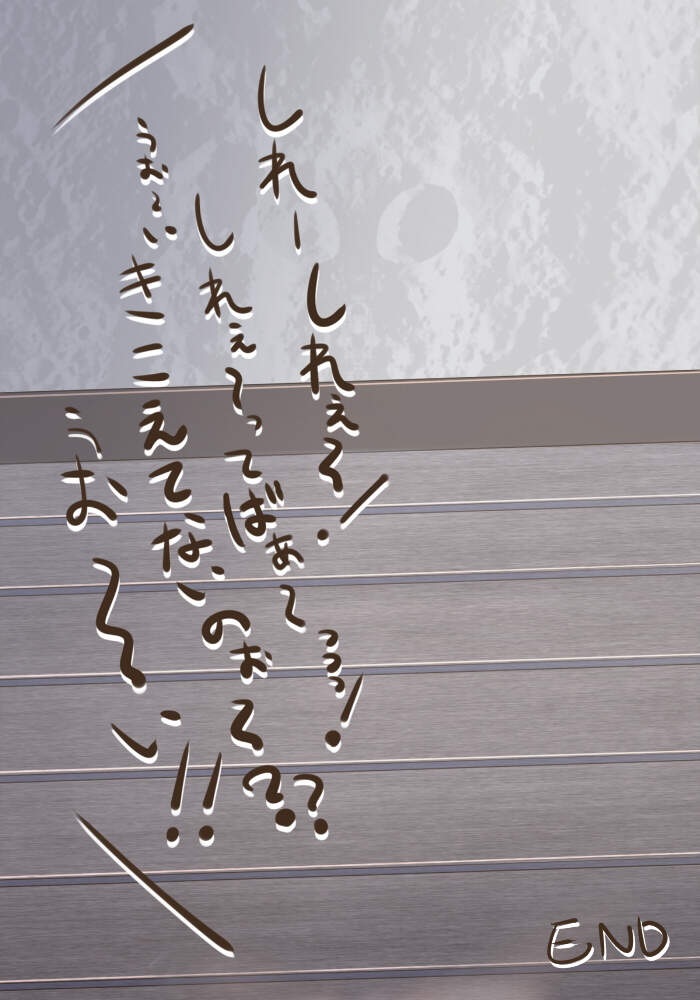 しれーしれぇ～！
しれぇ～ってばぁ～っっっ！
うぉ～いきこえてないのぉ～??
うお～い!!
END